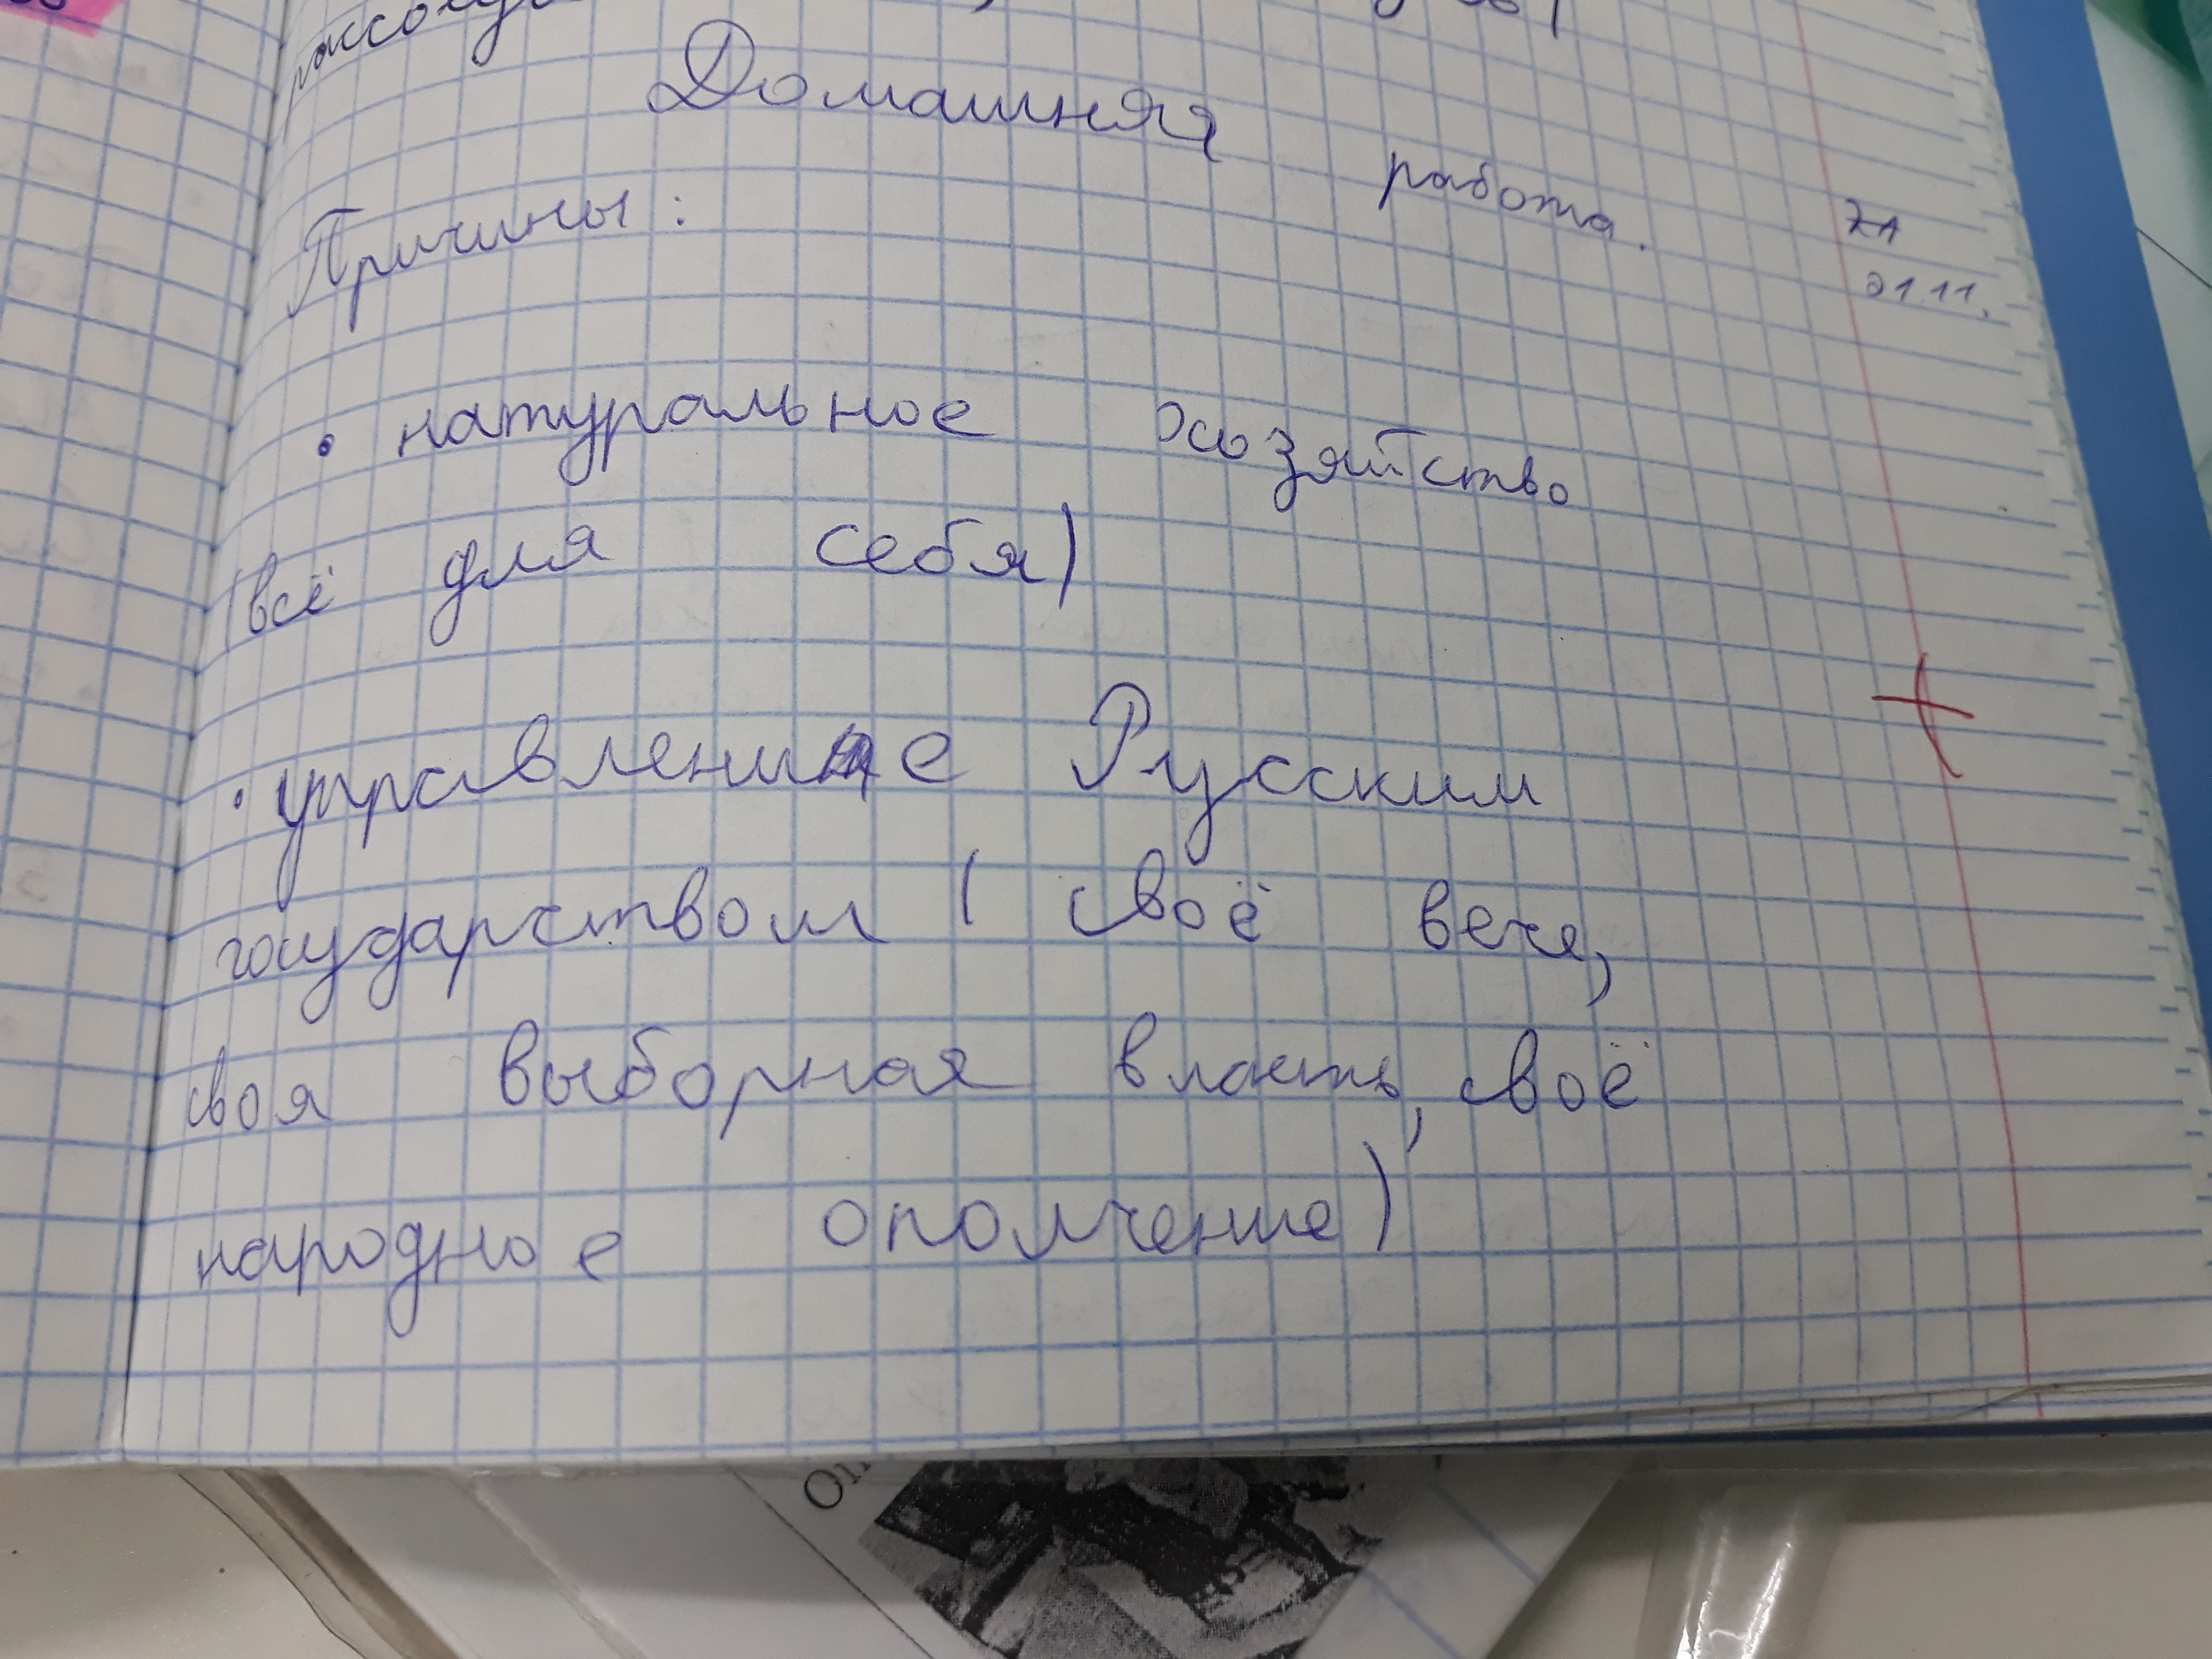 Домашняя работа.
21.11.
Причины:
• натуральное хозяйство
(всё для себя)
• управление Русским
государством (своё вече,
своя выборная власть, своё
народное ополчение)